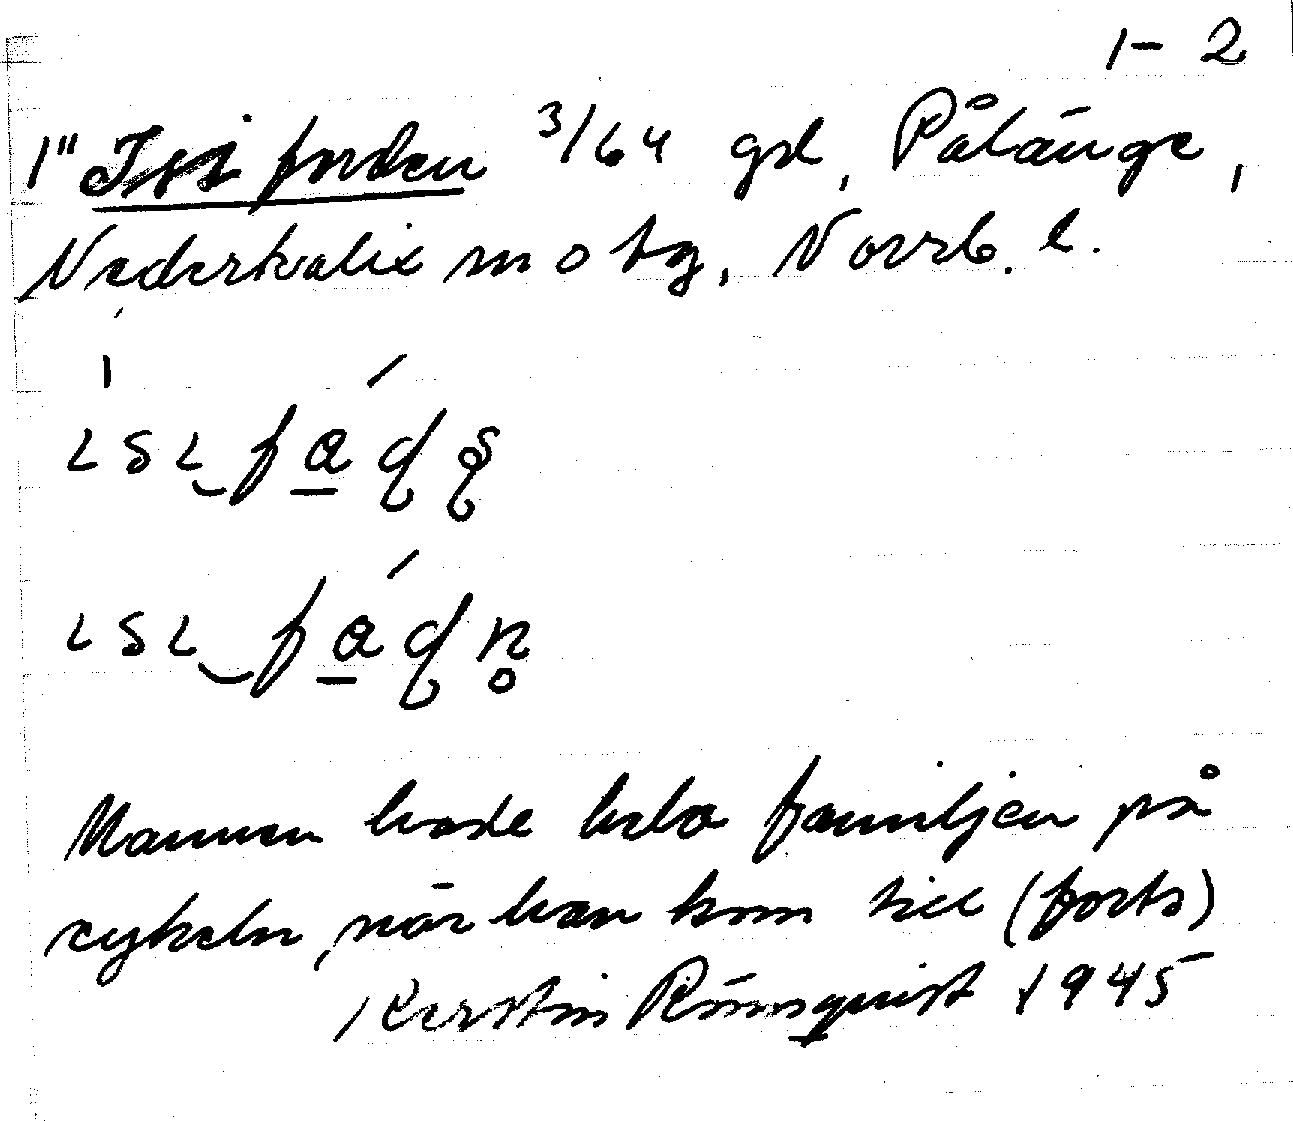 1-2
1" Isi forden 3/64 gd, Pålänge,
Nederkalix m o tg, Norrb. l.
Mannen hade hela familjen på
cykeln, när han kom till (forts)
Kerstin Rönnquist 1945